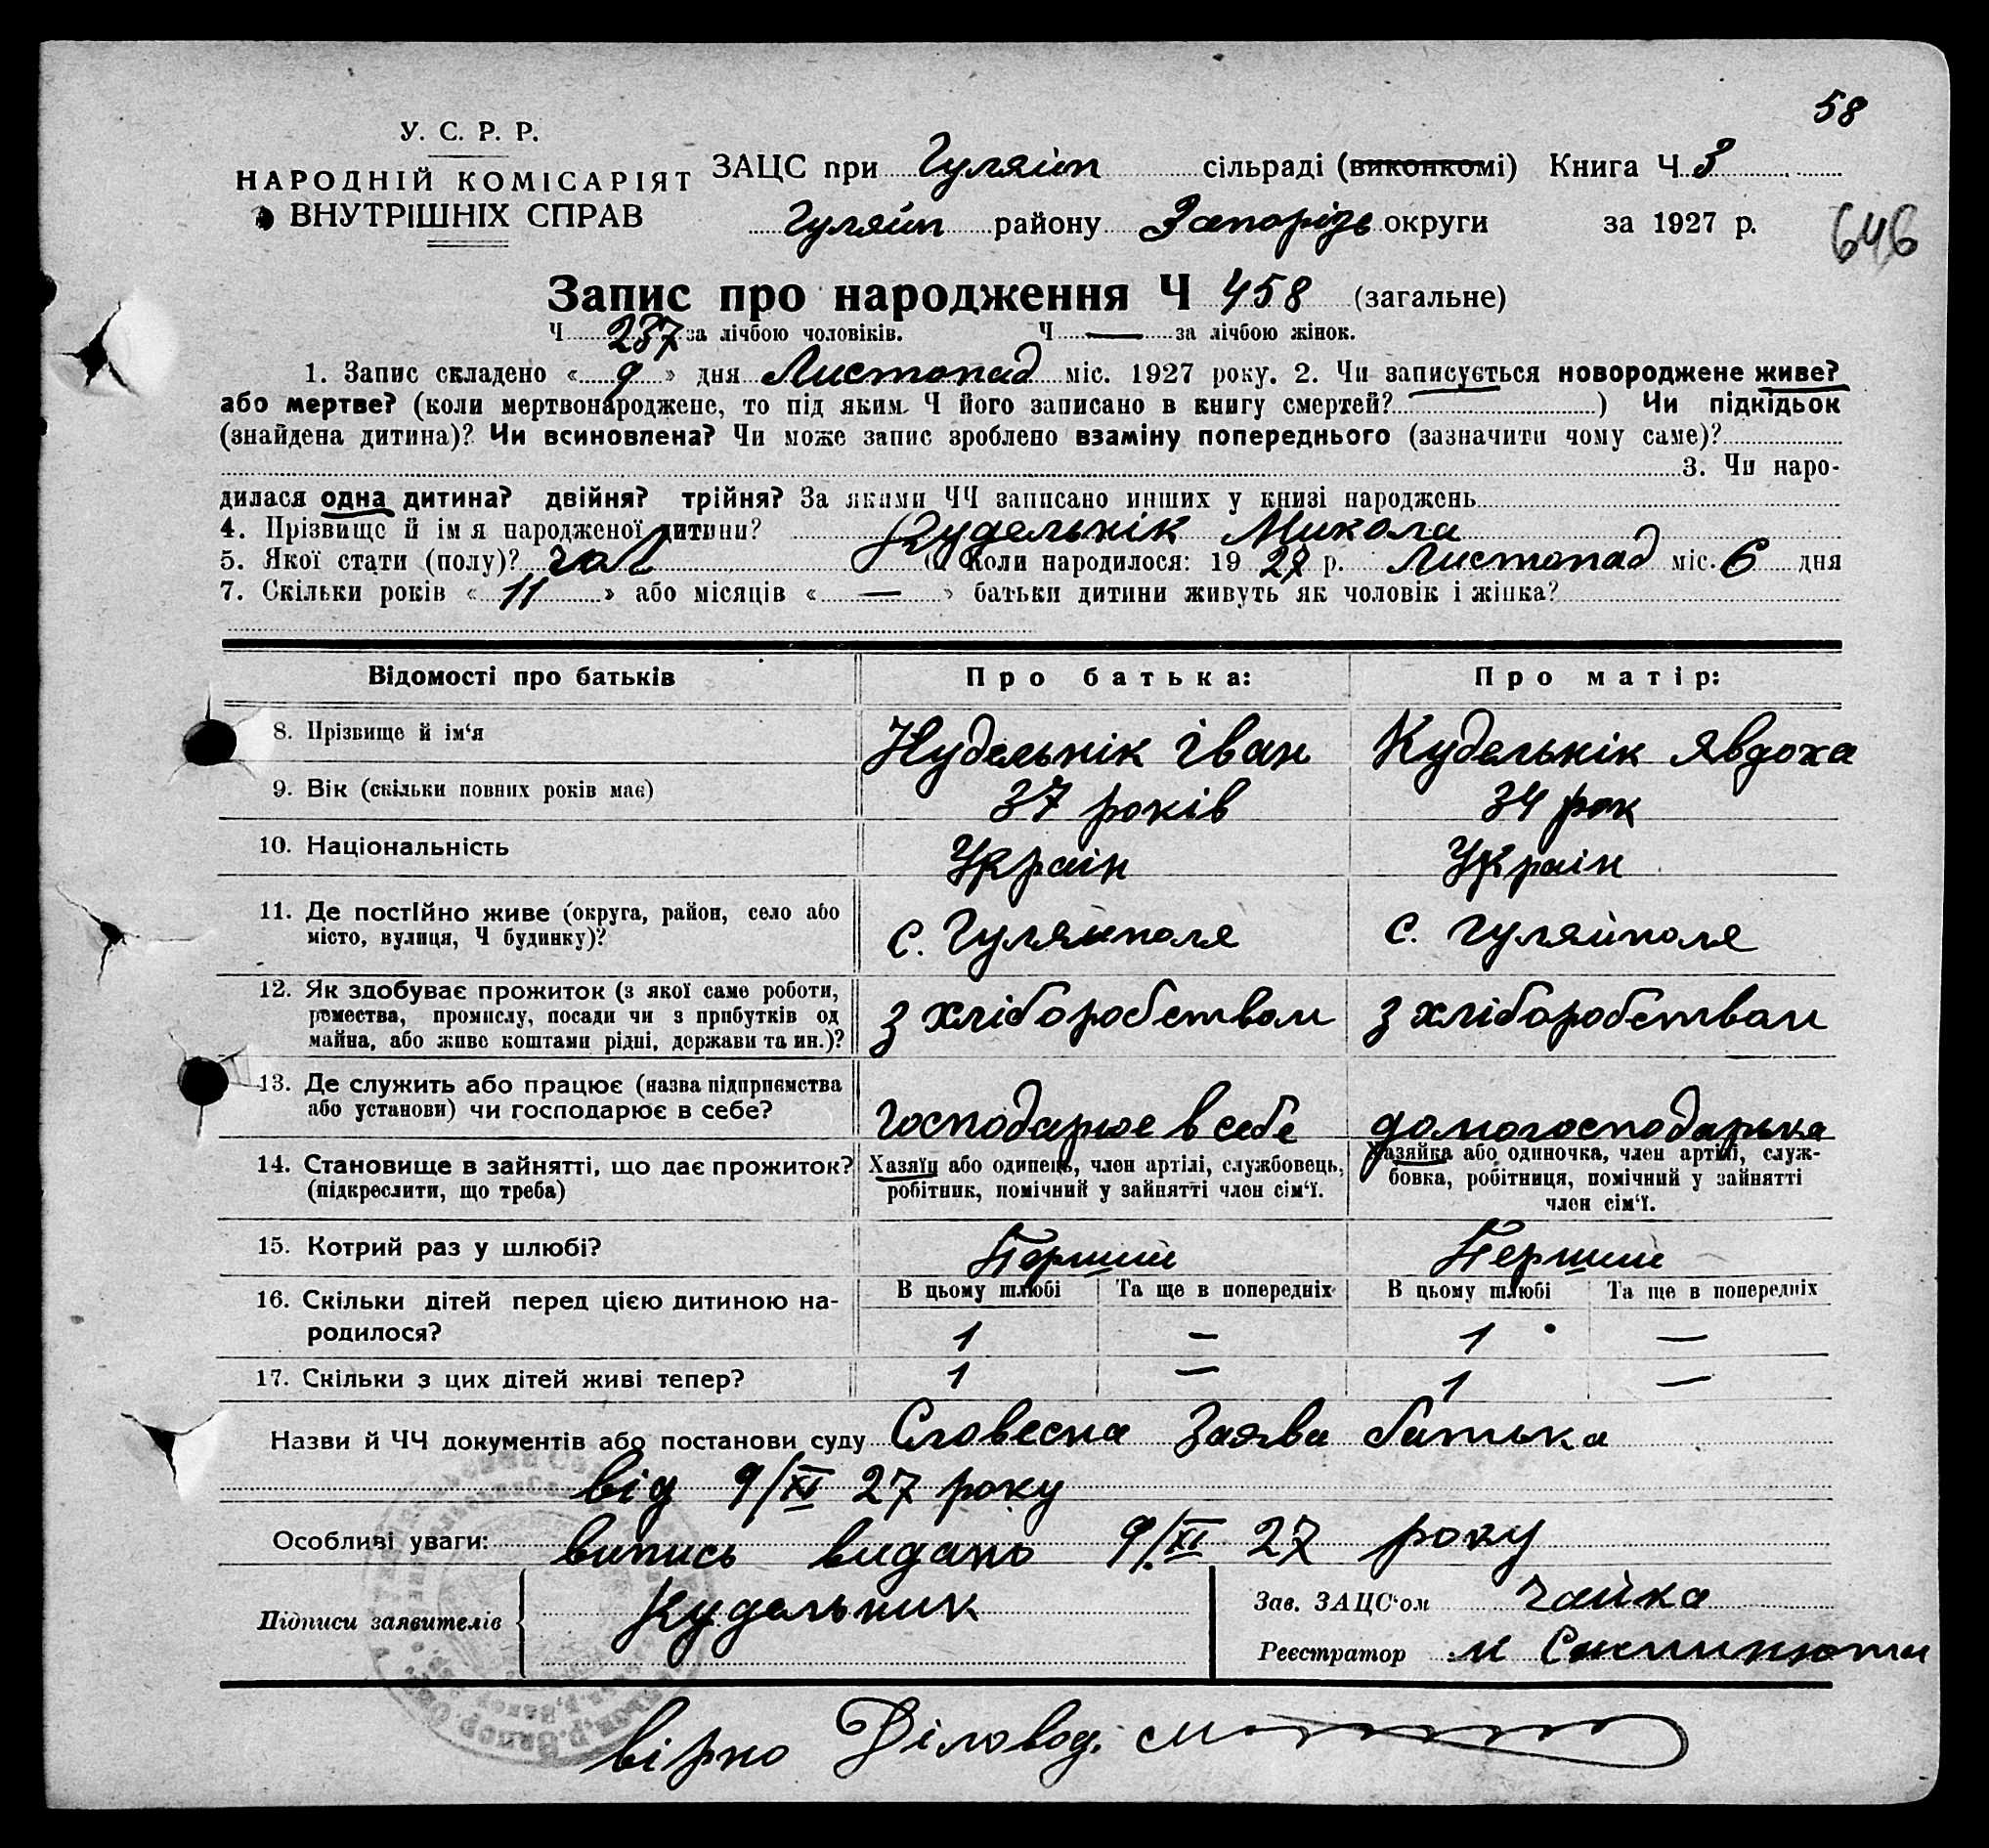 58
У. С. Р. Р.
НАРОДНІЙ КОМІСАРІЯТ
ВНУТРІШНІХ СПРАВ
ЗАЦС при Гуляйп сільраді (виконкомі) Книга Ч 3
Гуляйп району Запорізь округи за 1927 р.
646
Запис про народження Ч 458 (загальне)
Ч 237 за лічбою чоловіків. Ч — за лічбою жінок.
1. Запис складено « 9 » дня Листопад міс. 1927 року. 2. Чи записується новороджене живе?
або мертве? (коли мертвонароджене, то під яким Ч його записано в книгу смертей? ) Чи підкідьок
(знайдена дитина)? Чи всиновлена? Чи може запис зроблено взаміну попереднього (зазначити чому саме)?
3. Чи наро-
дилася одна дитина? двійня? трійня? За якими ЧЧ записано инших у книзі народжень
4. Прізвище й ім я народженої дитини? Кудельнік Микола
5. Якої стати (полу)? чол Коли народилося: 19 27 р. Листопад міс. 6 дня
7. Скільки років « 11 » або місяців « — » батьки дитини живуть як чоловік і жінка?
Відомості про батьків Про батька: Про матір:
8. Прізвище й ім‘я Кудельнік Іван Кудельнік Явдоха
9. Вік (скільки повних років має) 37 років 34 рок
10. Національність Украін Украін
11. Де постійно живе (округа, район, село або
місто, вулиця, Ч будинку)? с. Гуляйполя с. Гуляйполя
12. Як здобуває прожиток (з якої саме роботи,
ремества, промислу, посади чи з прибутків од
майна, або живе коштами рідні, держави та ин.)? З хліборобством З хліборобством
13. Де служить або працює (назва підприємства
або установи) чи господарює в себе? господарює в себе домогосподарька
14. Становище в зайнятті, що дає прожиток? Хазяїн або одинець, член артілі, службовець, Хазяйка або одиночка, член артілі, служ-
(підкреслити, що треба) робітник, помічний у зайнятті член сім‘ї. бовка, робітниця, помічний у зайнятті
член сім‘ї.
15. Котрий раз у шлюбі? Перший Перший
16. Скільки дітей перед цією дитиною на- В цьому шлюбі Та ще в попередніх В цьому шлюбі Та ще в попередніх
родилося? 1 — 1 —
17. Скільки з цих дітей живі тепер? 1 — 1 —
Назви й ЧЧ документів або постанови суду Словесна Заява батька
від 9/XI 27 року
Особливі уваги: випись видано 9/XI 27 року
Підписи заявителів Кудельник Зав. ЗАЦС‘ом Чайка
Реєстратор
вірно Діловод.